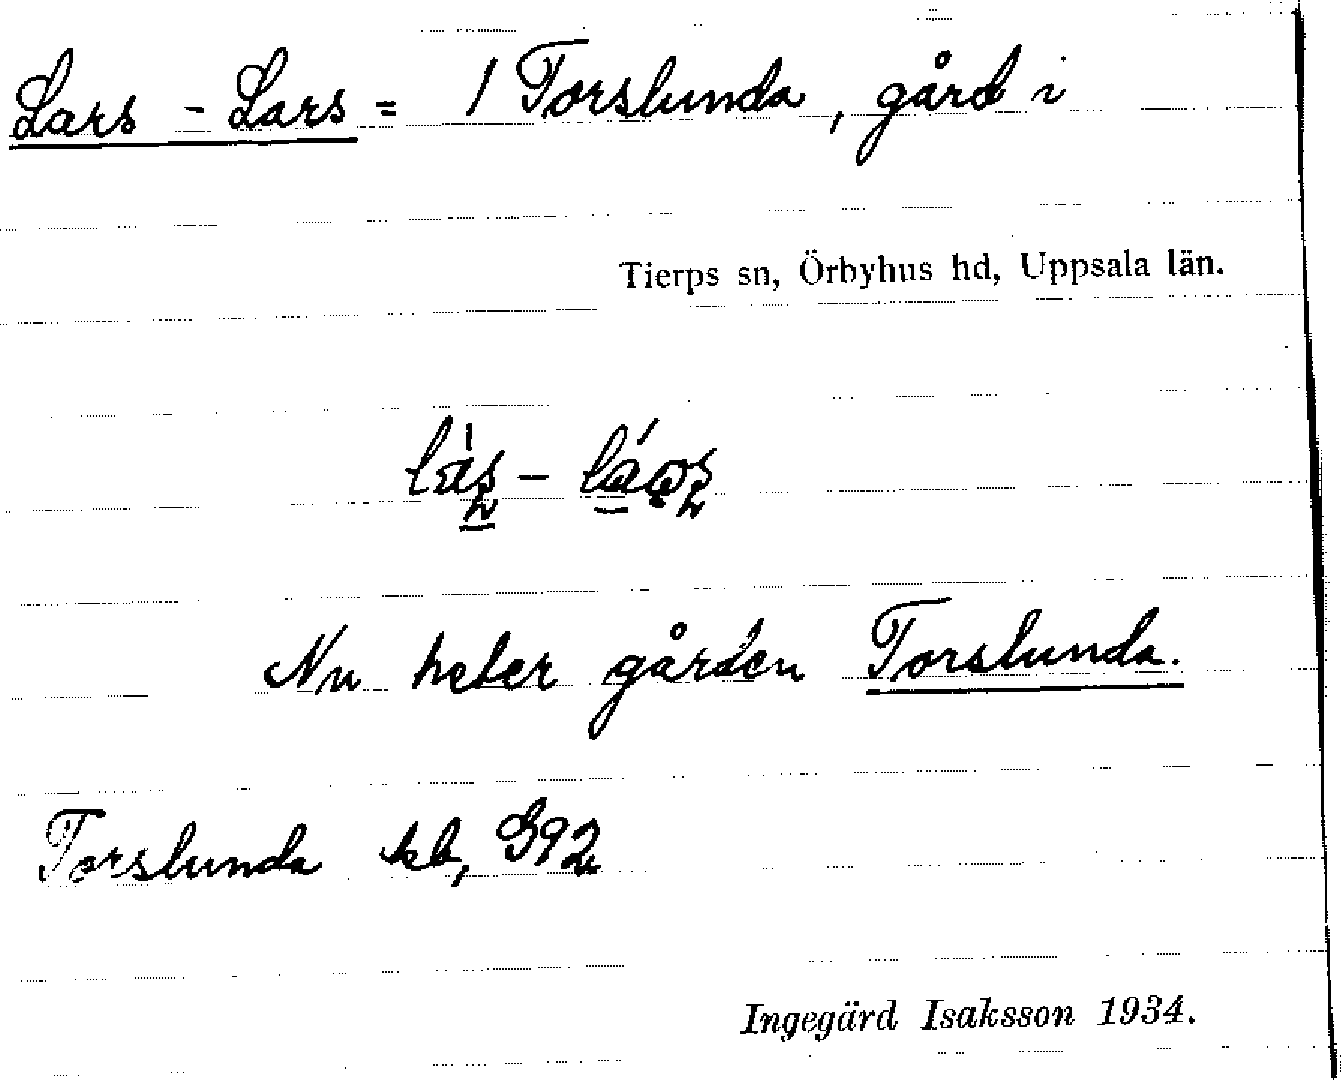 Lars - Lars = 1 Torslunda, gård i
Tierps sn, Örbyhus hd, Uppsala län.
Nu heter gården Torslunda.
Torslunda kb, G92
Ingegärd Isaksson 1934.